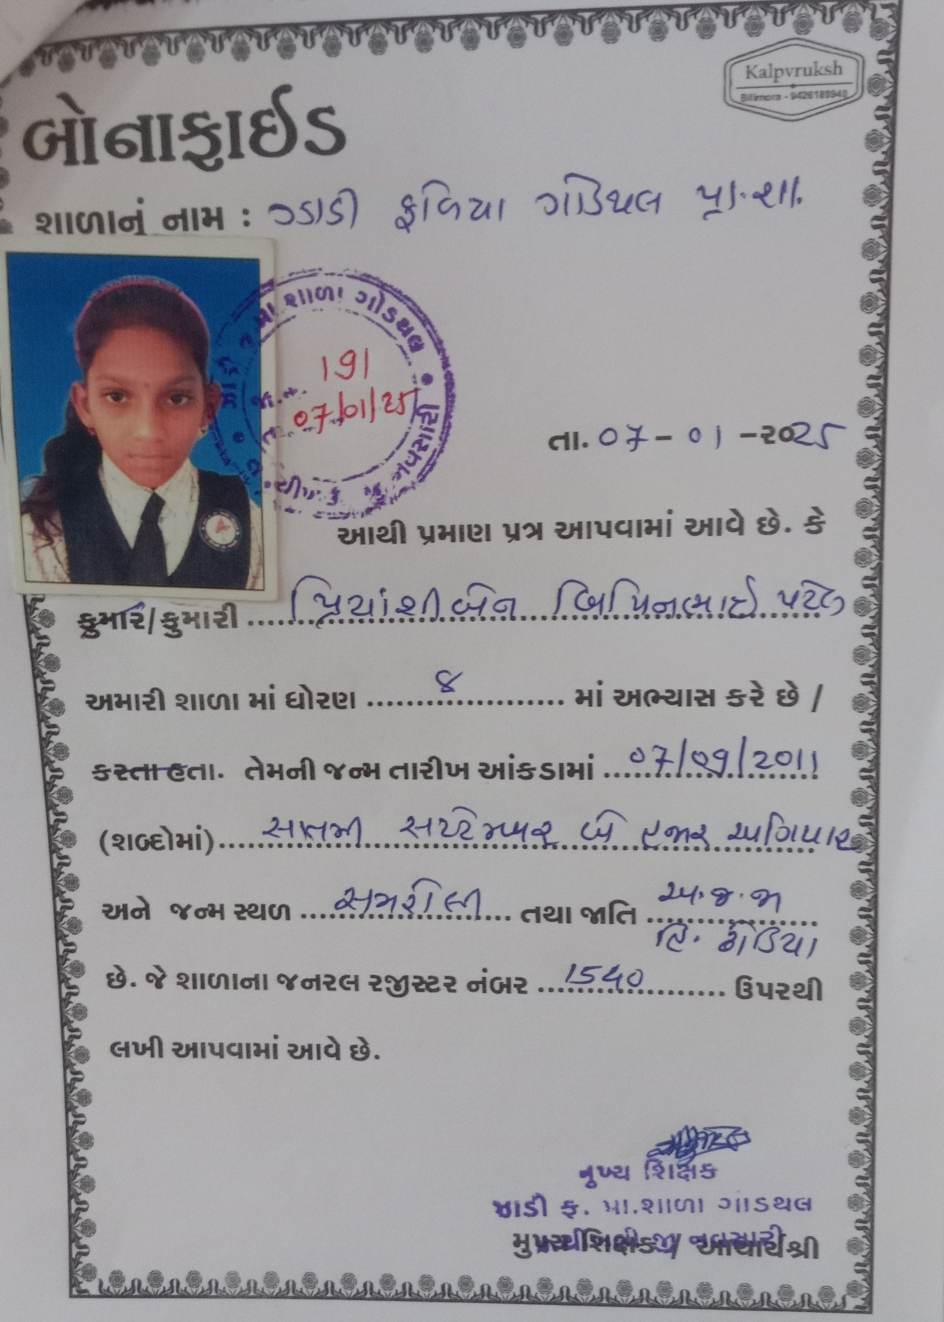 Kalpvruksh
Bilimora - 9426189940
બોનાફાઈડ
શાળાનું નામ : ઝાડી ફળિયા ગોડથલ પ્રા.શા.
મા શાળા ગોડથલ
નવસારી
જા.નં. 191
તા. 07/01/25
તા. 07 - 01 -2025
આથી પ્રમાણ પત્ર આપવામાં આવે છે. કે
કુમાર/કુમારી પ્રિયાંશીબેન બિપિનભાઈ પટેલ
અમારી શાળા માં ધોરણ 8 માં અભ્યાસ કરે છે /
કરતા હતા. તેમની જન્મ તારીખ આંકડામાં 07/09/2011
(શબ્દોમાં) સાતમી સપ્ટેમ્બર બે હજાર અગિયાર
અને જન્મ સ્થળ સમરોલી તથા જાતિ અ.જ.જા
હિ. ઢોડિયા
છે. જે શાળાના જનરલ રજીસ્ટર નંબર 1540 ઉપરથી
લખી આપવામાં આવે છે.
મુખ્ય શિક્ષક
ઝાડી ફ. પ્રા.શાળા ગોડથલ
મુખ્ય શિક્ષક / આચાર્યશ્રી